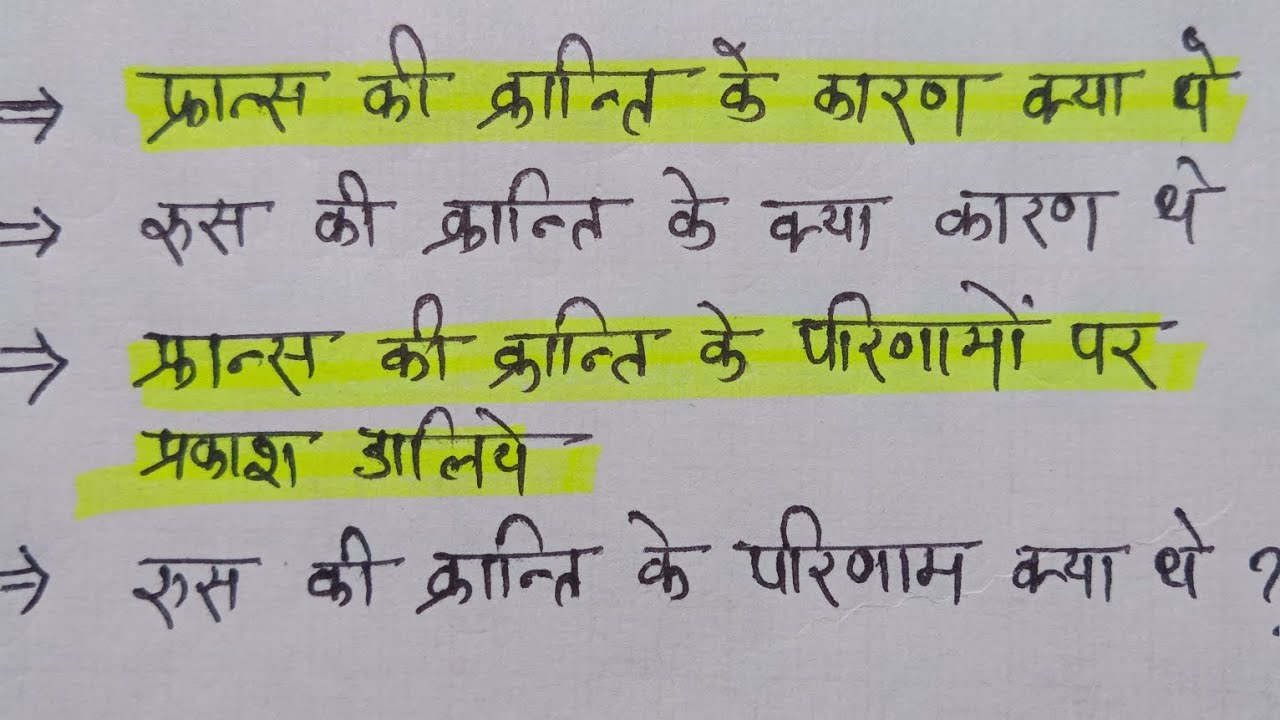 ⇒ फ्रान्स की क्रान्ति के कारण क्या थे
⇒ रुस की क्रान्ति के क्या कारण थे
⇒ फ्रान्स की क्रान्ति के परिणामों पर
प्रकाश डालिये
⇒ रुस की क्रान्ति के परिणाम क्या थे ?